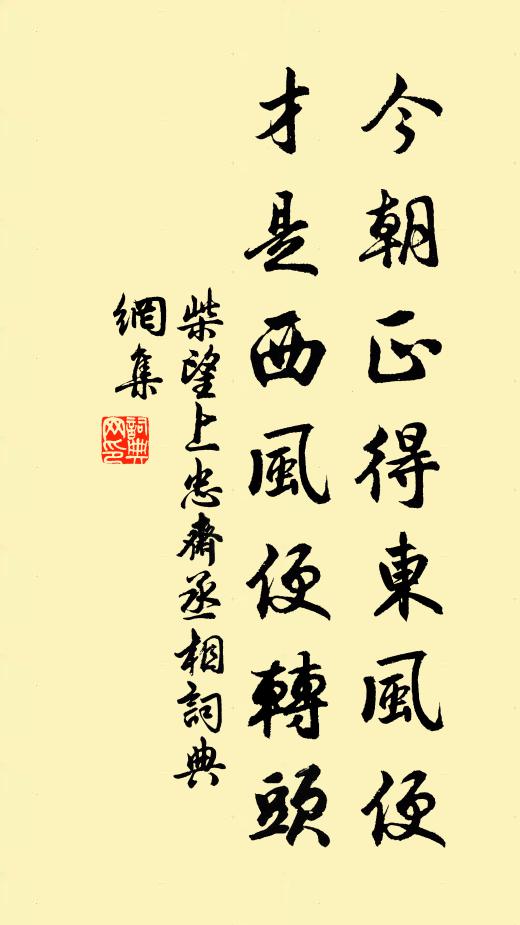 今朝正得東風便
才是西風便轉頭
柴望上忠齋丞相詞典
網集
詞典
网印